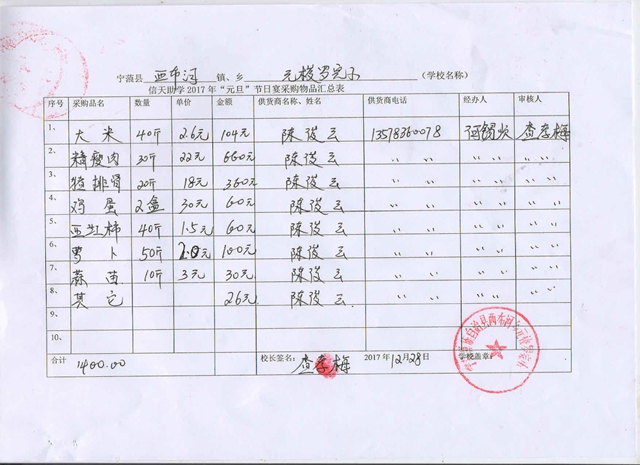 宁蒗县 西布河 镇、乡 元梭罗完小 (学校名称)
信天助学2017年“元旦”节日宴采购物品汇总表
序号 采购品名 数量 单价 金额 供货商名称、姓名 供货商电话 经办人 审核人
1、 大米 40斤 2.6元 104元 陈设云 13578360078 查孝梅
2、 精瘦肉 30斤 22元 660元 陈设云 〃 〃 〃 〃 〃 〃
3、 猪排骨 20斤 18元 360元 陈设云 〃 〃 〃 〃 〃 〃
4、 鸡蛋 2盒 30元 60元 陈设云 〃 〃 〃 〃 〃 〃
5、 西红柿 40斤 1.5元 60元 陈设云 〃 〃 〃 〃 〃 〃
6、 萝卜 50斤 2.0元 100元 陈设云 〃 〃 〃 〃 〃 〃
7、 蒜苗 10斤 3元 30元 陈设云 〃 〃 〃 〃 〃 〃
8、 其它 26元 陈设云 〃 〃 〃 〃 〃 〃
9、
10、
合计 1400.00 校长签名: 查孝梅 2017年12月28日 学校盖章: